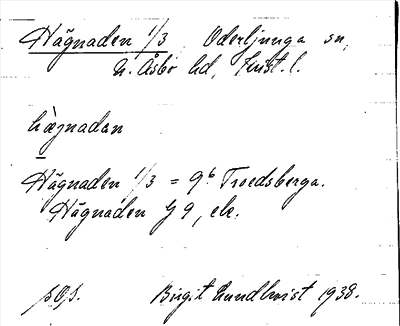 Hägnaden 1/3 Oderljunga sn,
N. Åsbo hd, Krist. l.
hægnadan
Hägnaden 1/3 = 9b Troedsberga.
Hägnaden G 9, ek.
Birgit Lundkvist 1938.